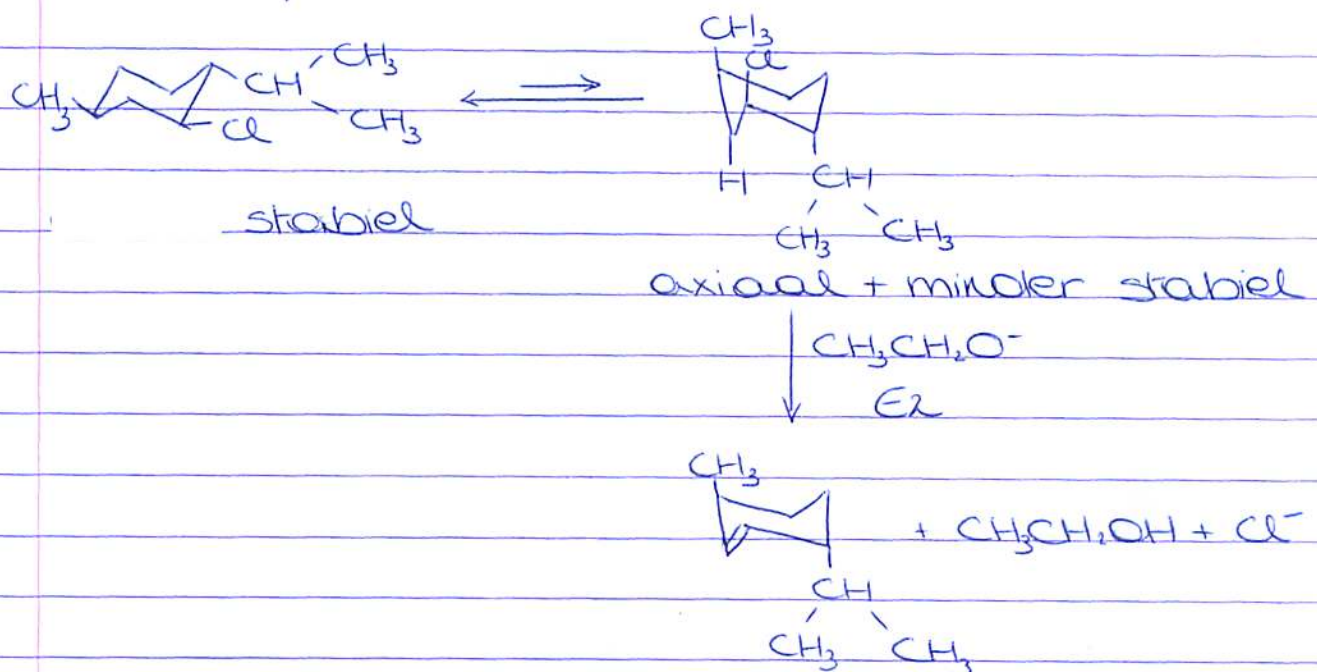 CH₃
Cl
CH₃ CH CH₃
Cl CH₃
H CH
CH₃ CH₃
stabiel
axiaal + minder stabiel
CH₃CH₂O⁻
E2
CH₃
+ CH₃CH₂OH + Cl⁻
CH
CH₃ CH₃